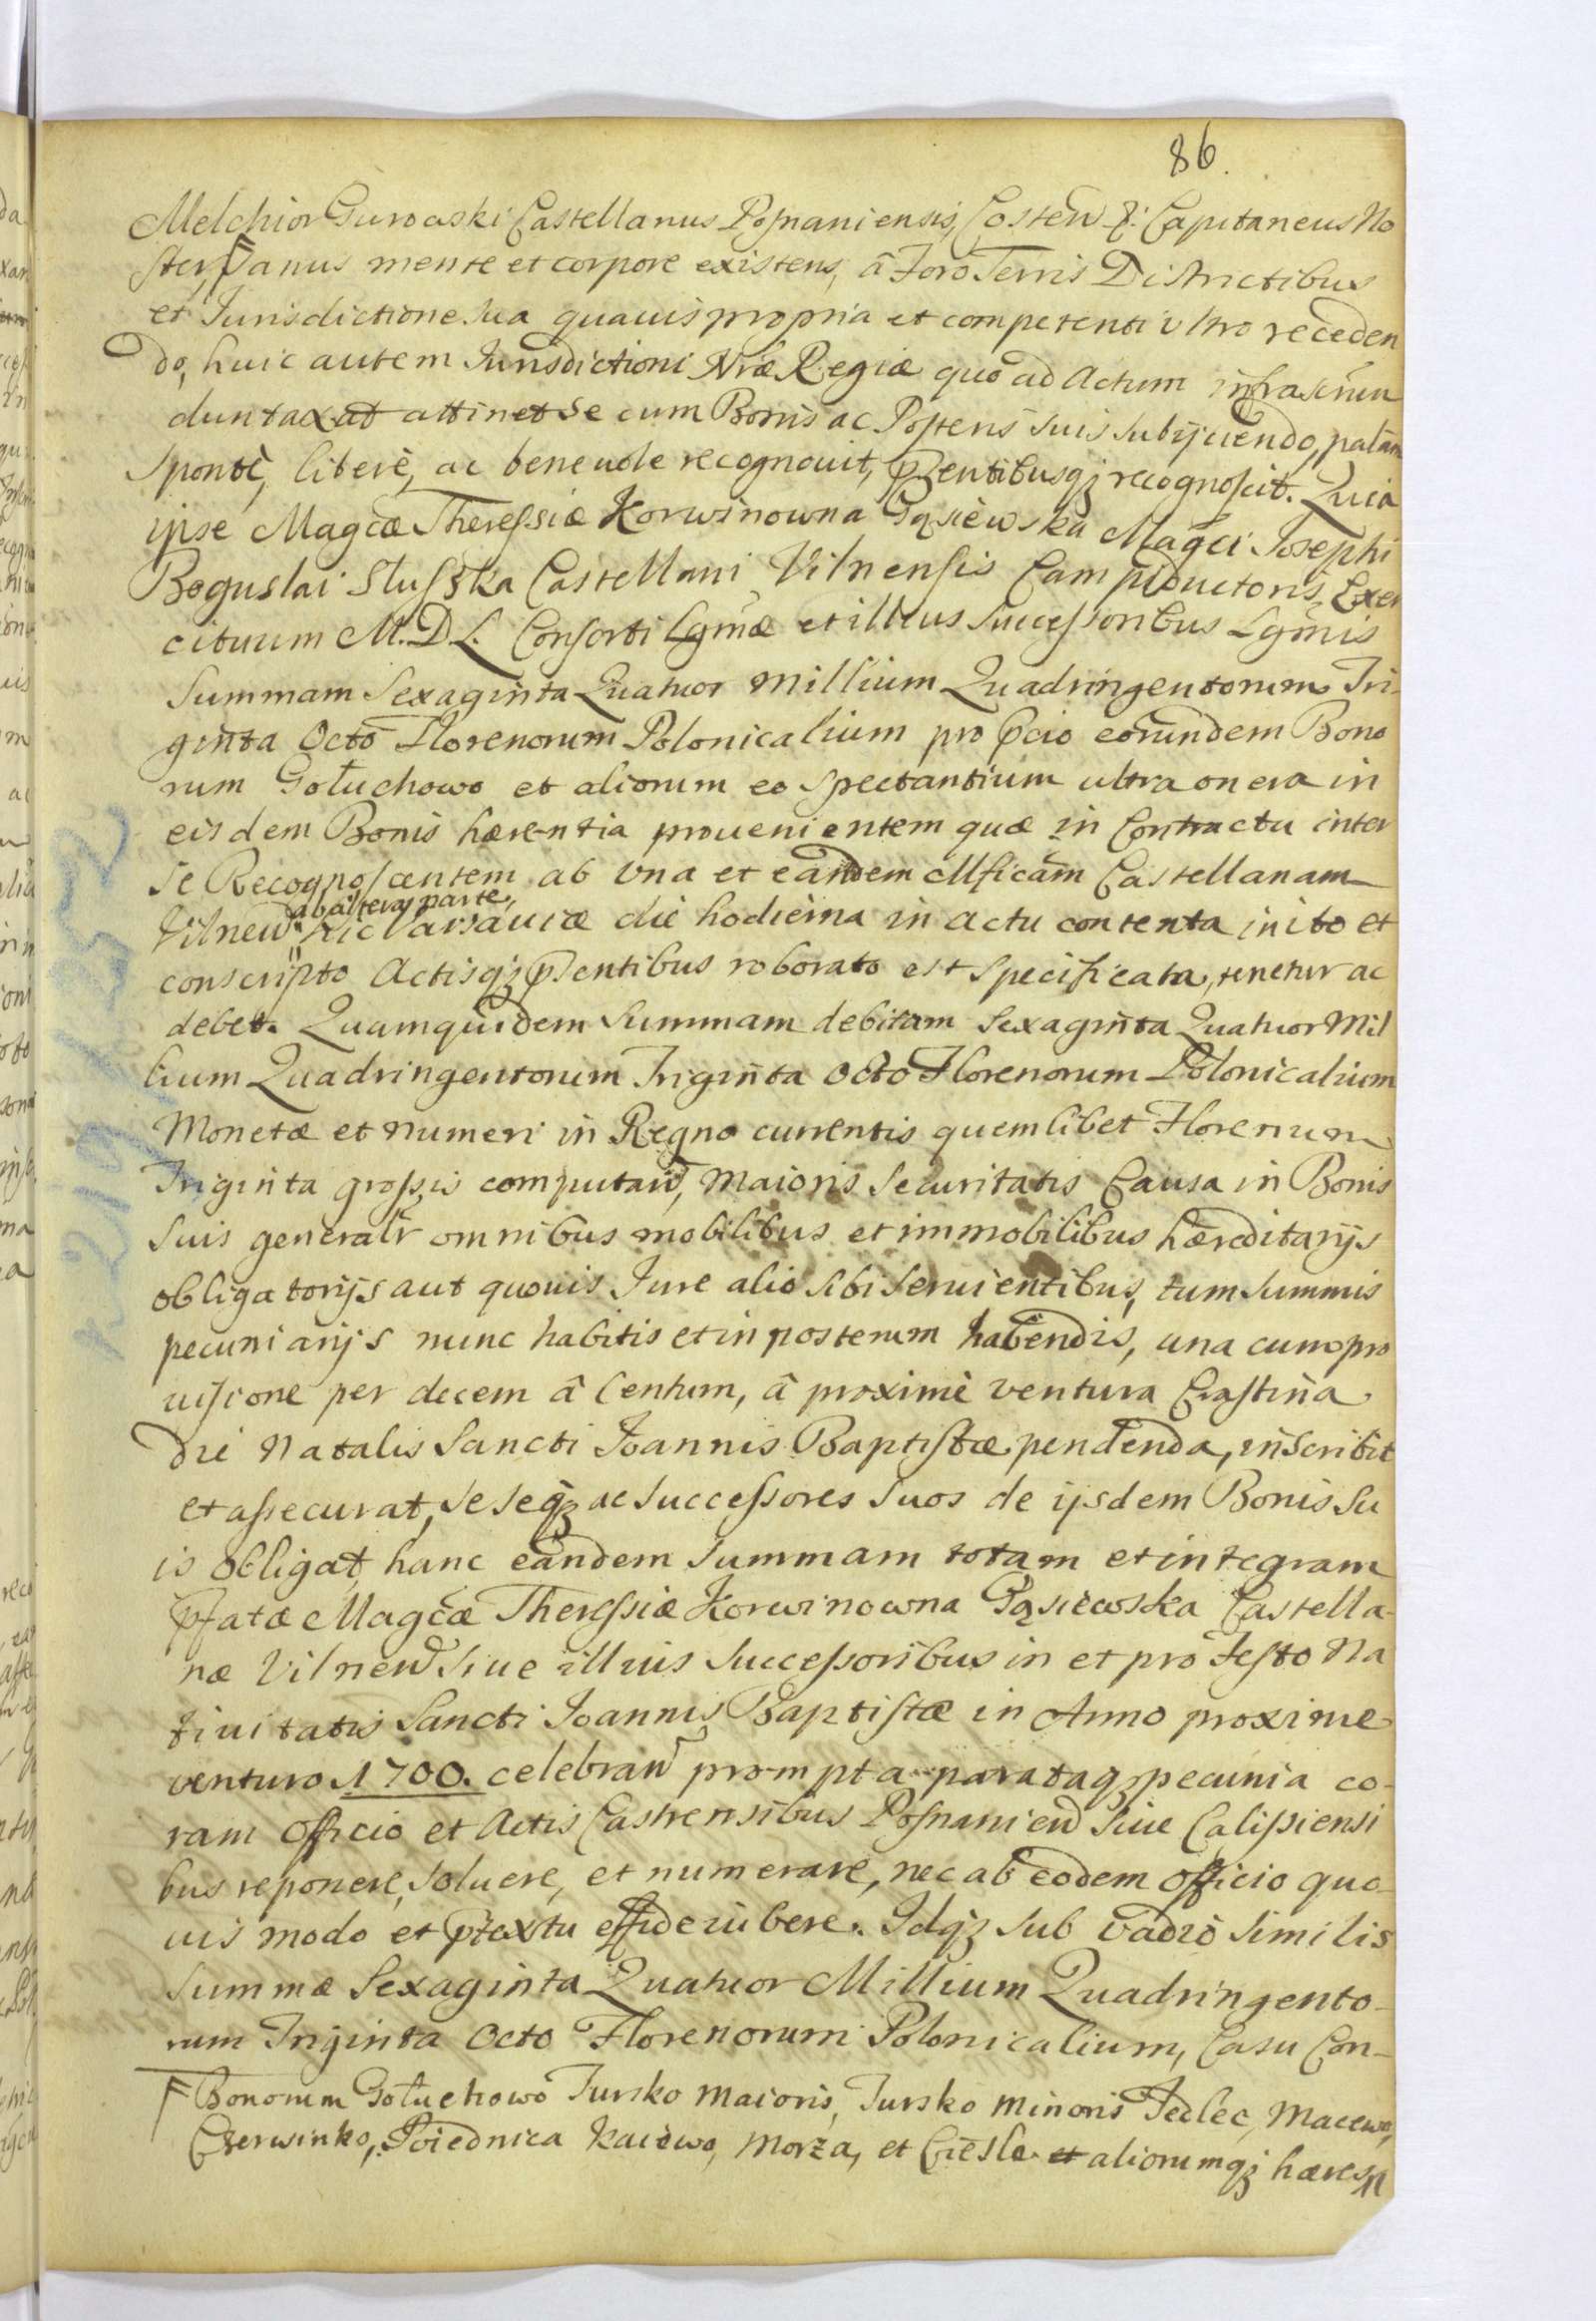 86.
Melchior Gurowski Castellanus Posnaniensis, Costen. &: Capitaneus No
ster, ꟻ Sanus mente et corpore existens, â Foro Terris Districtibus
et Iurisdictione sua quauis propria et competenti vltro receden
do, huic autem Iurisdictioni Nrae Regiae quò ad Actum infrascriptu
duntaxat attinet se cum Bonis ac Posteris suis subijciendo, palàm
spontè, liberè, ac beneuole recognouit, pñtentibusqȝ recognoscit. Quia
ipse Magcae Theressiae Korwinowna Gąsiewska Magci Iosephi
Boguslai Slusska Castellani Vilnensis Campiductoris Exer
cituum M. D. L. Consorti Lgmae et illius successoribus Lgmis
summam Sexaginta Quatuor Millium Quadringentorum Tri-
ginta Octo Florenorum Polonicalium pro pcio eorundem Bono
rum Gołuchowo et aliorum eo spectantium ultra onera in
eisdem Bonis haerentia prouenientem quae in Contractu inter
se Recognoscentem ab vna et eandem Mficam Castellanam
ab altera parte,
Vilnen. hic Varsauiae die hodierna in actu contenta inito et
conscripto Actisqȝ psentibus roborato est specificata, tenetur ac
debet. Quamquidem summam debitam Sexaginta Quatuor Mil
lium Quadringentorum Triginta Octo Florenorum Polonicalium
Monetae et numeri in Regno currentis quemlibet Florenum
Triginta grossis computan, Maioris securitatis Causa in Bonis
suis generalr omnibus mobilibus et immobilibus haereditarijs
obligatorijs aut quouis Iure alio sibi seruientibus, tum summis
pecuniarijs nunc habitis et in posterum habendis, una cum pro
uisione per decem â Centum, â proximè ventura Crastina
die Natalis Sancti Ioannis Baptistae pendenda, inscribit
et assecurat, se seqȝ ac successores suos de ijsdem Bonis su
is obligat, hanc eandem summam totam et integram
pfatae Magcae Theressiae Korwinowna Gąsiewska Castella-
nae Vilnen siue illius successoribus in et pro Festo Na
tiuitatis Sancti Ioannis Baptistae in Anno proxime
venturo 1700. celebran prompta parataqȝ pecunia co-
ram officio et Actis Castrensibus Posnanien siue Calissiensi
bus reponere, soluere, et numerare, nec ab eodem officio quo-
uis modo et ptextu effide iubere. Idqȝ sub vadio similis
summae Sexaginta Quatuor Millium Quadringento-
rum Triginta Octo Florenorum Polonicalium, Casu Con-
ꟻ Bonorum Gołuchowo Tursko maioris, Tursko minoris Jedlec, Macewo,
Czerwinko, Poiednica Kaiewo, Morza, et Ciesle et aliorumqȝ haeres //